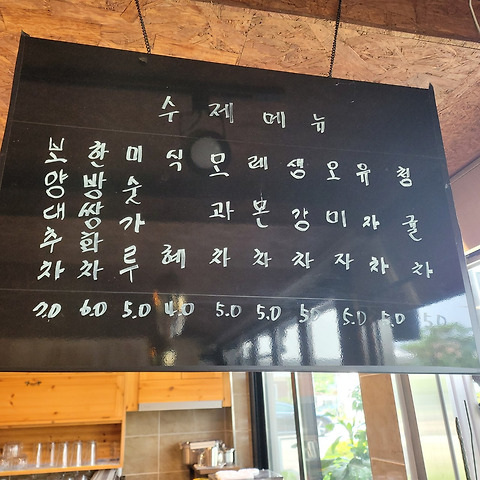 수제메뉴
보양대추차 7.0
한방쌍화차 6.0
미숫가루 5.0
식혜 4.0
모과차 5.0
레몬차 5.0
생강차 5.0
오미자차 5.0
유자차 5.0
청귤차 5.0